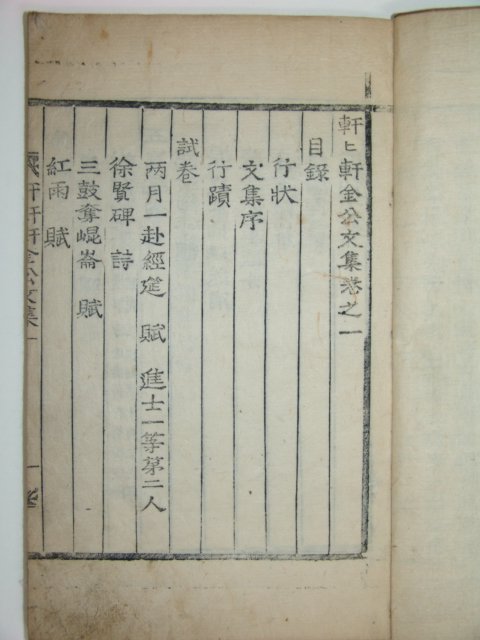 軒匕軒金公文集卷之一
目錄
行狀
文集序
行蹟
試卷
兩月一赴經筵 賦 進士一等第二人
徐賢碑 詩
三鼓奪崐崙 賦
紅雨 賦
軒軒軒金公文集 一